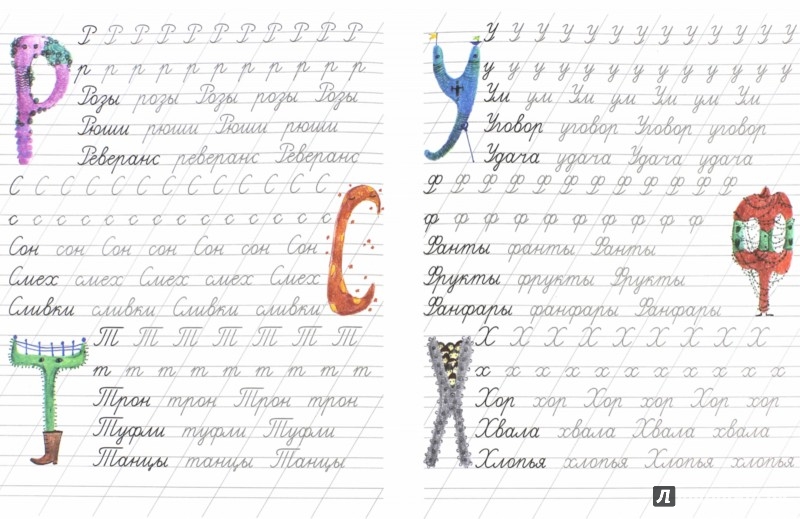 Р Р Р Р Р Р Р Р Р Р Р
р р р р р р р р р р р
Розы розы Розы розы Розы
Рюши рюши Рюши рюши
Реверанс реверанс Реверанс
С С С С С С С С С С С С С
с с с с с с с с с с с с с
Сон сон Сон сон Сон сон Сон
Смех смех Смех смех Смех
Сливки сливки Сливки сливки
Т Т Т Т Т Т Т
т т т т т т т т т
Трон трон Трон трон
Туфли туфли Туфли
Танцы танцы Танцы
У У У У У У У У У У У У У
у у у у у у у у у у у у у
Ум ум Ум ум Ум ум Ум
Уговор уговор Уговор уговор
Удача удача Удача удача
Ф Ф Ф Ф Ф Ф Ф Ф Ф Ф Ф Ф
ф ф ф ф ф ф ф ф ф ф
Фанты фанты Фанты
Фрукты фрукты Фрукты
Фанфары фанфары Фанфары
Х Х Х Х Х Х Х Х Х
х х х х х х х х х х х
Хор хор Хор хор Хор хор
Хвала хвала Хвала хвала
Хлопья хлопья Хлопья хлопья